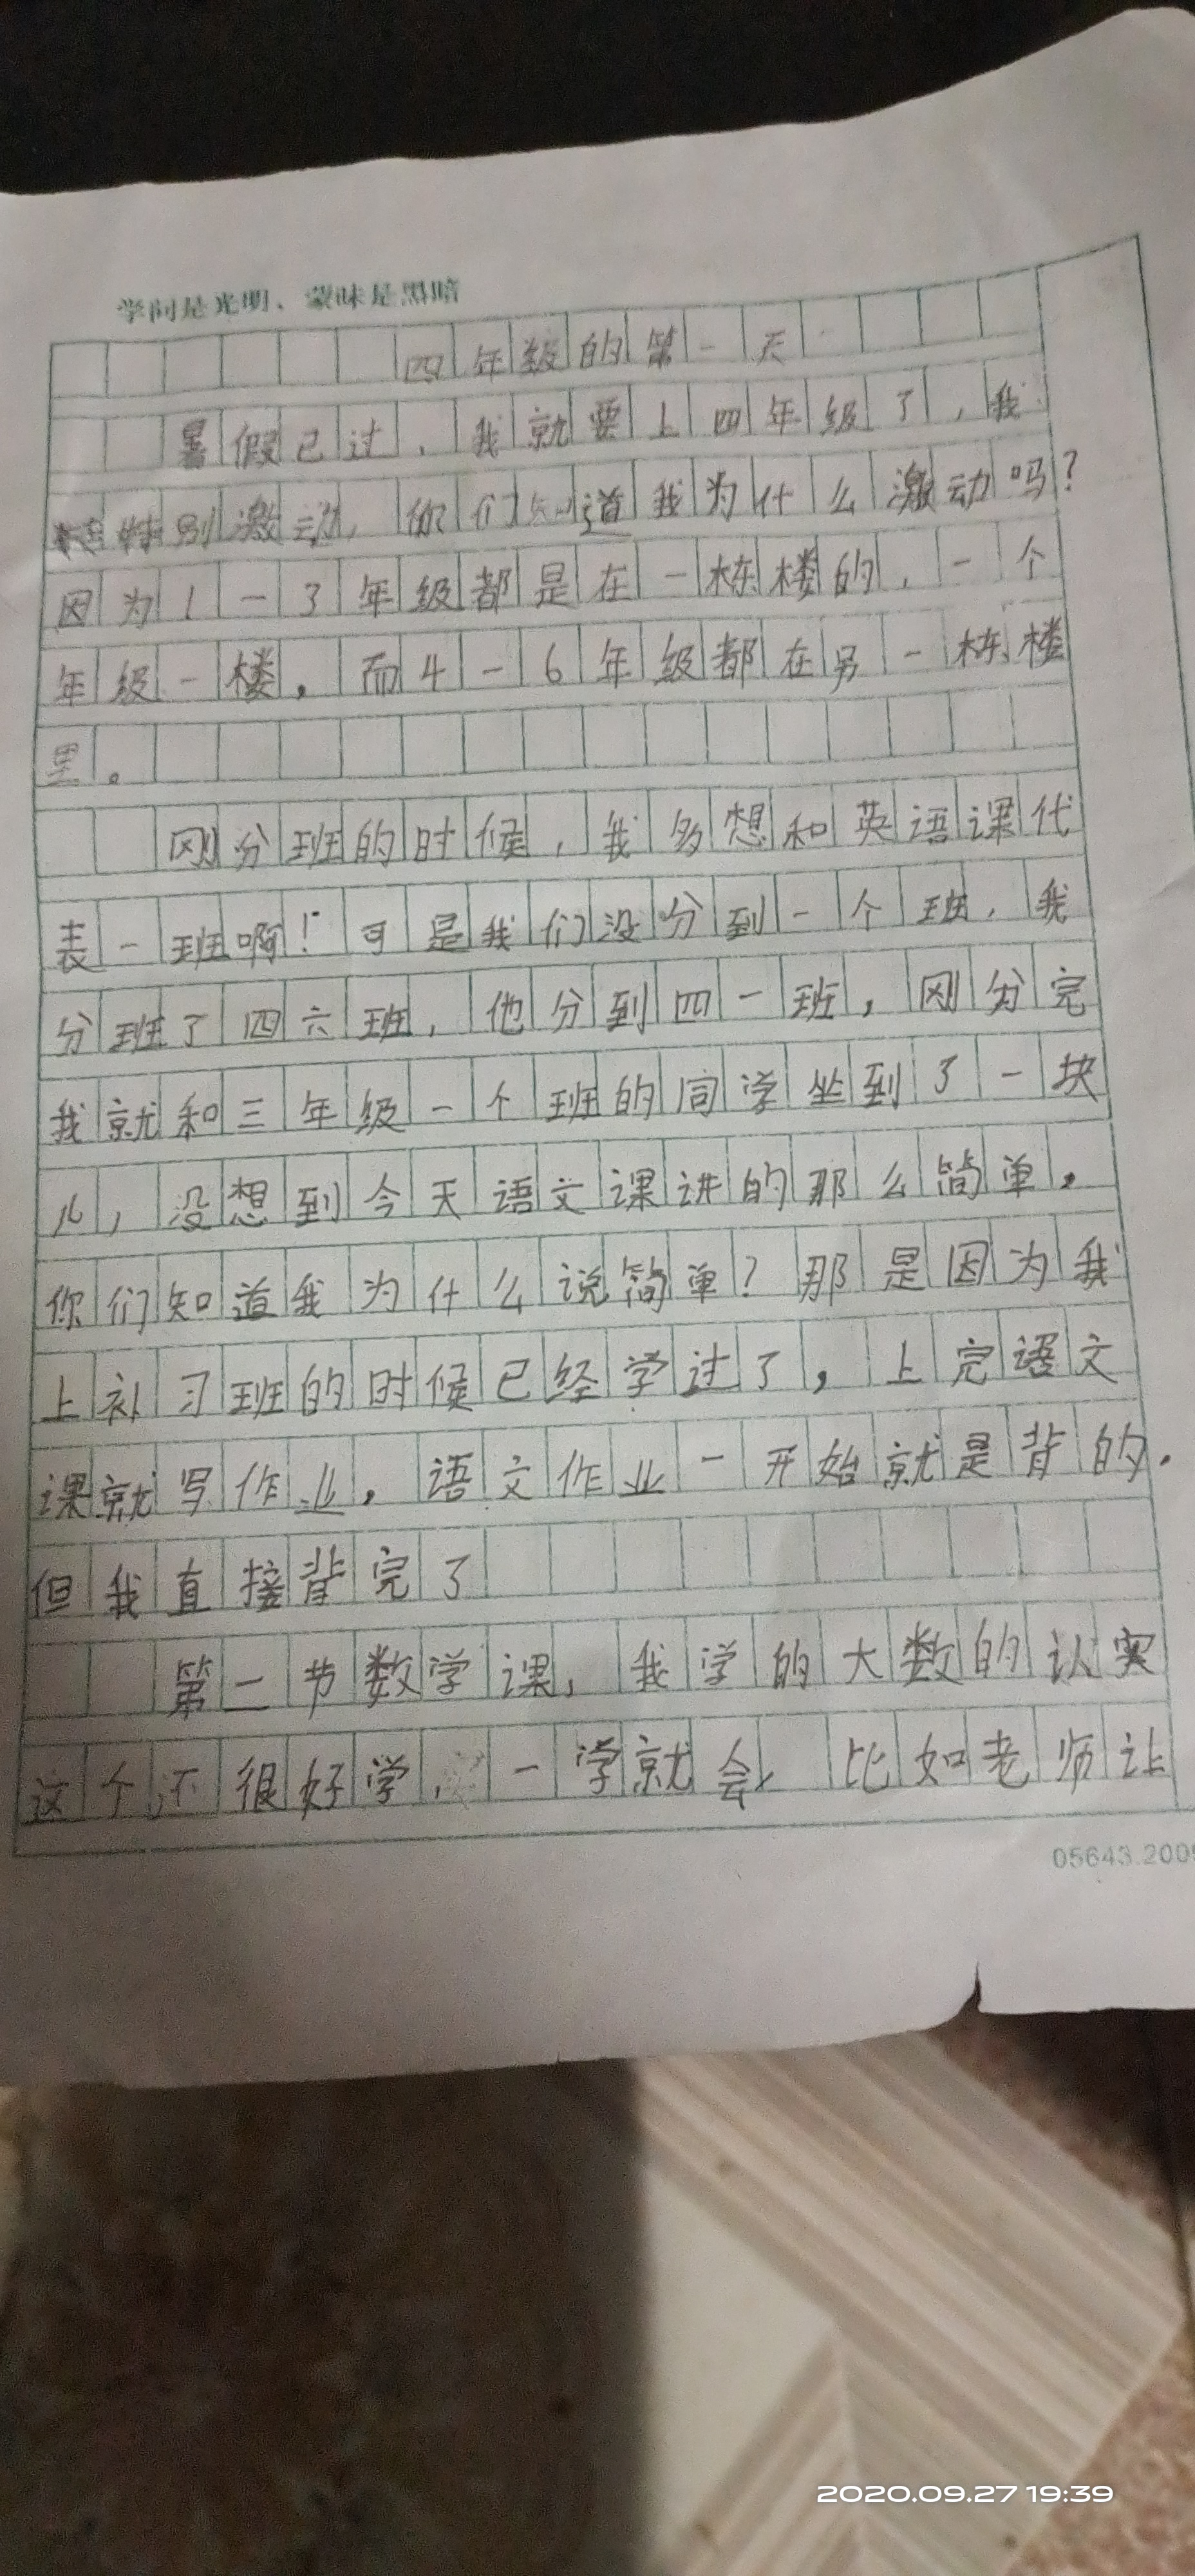 学问是光明、蒙昧是黑暗
四年级的第一天
暑假已过，我就要上四年级了，我
特别激动，你们知道我为什么激动吗？
因为1一3年级都是在一栋楼的，一个
年级一楼，而4一6年级都在另一栋楼
里。
刚分班的时候，我多想和英语课代
表一班啊！可是我们没分到一个班，我
分班了四六班，他分到四一班，刚分完
我就和三年级一个班的同学坐到了一块
儿，没想到今天语文课讲的那么简单，
你们知道我为什么说简单？那是因为我
上补习班的时候已经学过了，上完语文
课就写作业，语文作业一开始就是背的，
但我直接背完了
第二节数学课，我学的大数的认实
这个还很好学，一学就会，比如老师让
05643.200
2020.09.27 19:39